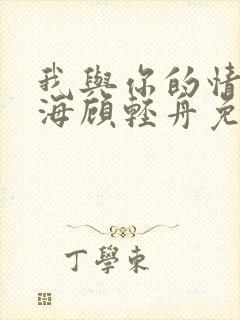 我與你的情
海顧輕舟免
丁學東